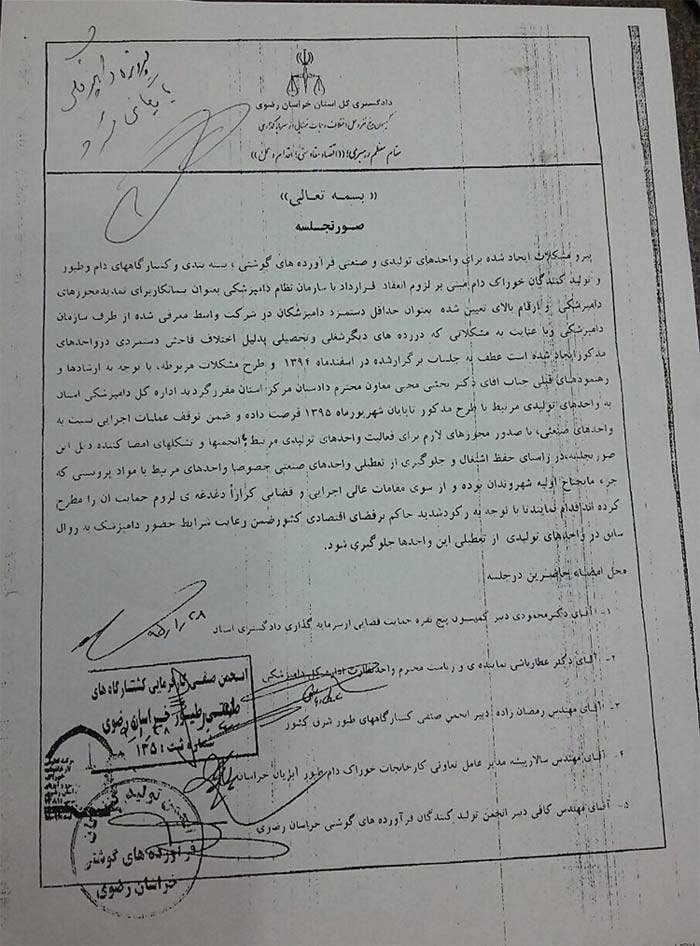 پرونده دامپزشکی
بایگانی شود
دادگستری کل استان خراسان رضوی
مقام معظم رهبری: «اقتصاد مقاومتی؛ اقدام و عمل»
« بسمه تعالی»
صورتجلسه
پیرو مشکلات ایجاد شده برای واحدهای تولیدی و صنعتی فرآورده های گوشتی ، بسته بندی و کسارگاههای دام وطیور
و تولید کنندگان خوراک دام مبنی بر لزوم انعقاد قرارداد با سازمان نظام دامپزشکی بعنوان پیمانکاربرای تمدیدمجوزهای
دامپزشکی و ارقام بالای تعیین شده بعنوان حداقل دستمزد دامپزشکان در شرکت واسط معرفی شده از طرف سازمان
دامپزشکی وبا عنایت به مشکلاتی که دررده های دیگرشغلی وتحصیلی بدلیل اختلاف فاحش دستمزدی درواحدهای
مذکورایجاد شده است عطف به جلسات برگزارشده در اسفندماه ۱۳۹۴ و طرح مشکلات مربوطه، با توجه به ارشادها و
رهنمودهای قبلی جناب اقای دکتر بخشی محبی معاون محترم دادستان مرکز استان مقررگردید اداره کل دامپزشکی استان
به واحدهای تولیدی مرتبط با طرح مذکور تاپایان شهریورماه ۱۳۹۵ فرصت داده و ضمن توقف عملیات اجرایی نسبت به
واحدهای صنعتی، با صدور مجوزهای لازم برای فعالیت واحدهای تولیدی مرتبط با انجمنها و تشکلهای امضا کننده ذیل این
صورتجلسه،در راستای حفظ اشتغال و جلوگیری از تعطیلی واحدهای صنعتی خصوصا واحدهای مرتبط با مواد پروتیینی که
جزء مایحتاج اولیه شهروندان بوده و از سوی مقامات عالی اجرایی و قضایی کراراً دغدغه ی لزوم حمایت ان را مطرح
کرده اند اقدام نمایندتا با توجه به رکودشدید حاکم برفضای اقتصادی کشورضمن رعایت شرایط حضور دامپزشک به روال
سابق در واحدهای تولیدی از تعطیلی این واحدها جلوگیری شود.
محل امضاء حاضرین درجلسه
۱- آقای دکترمحمودی دبیر کمیسیون پنج نفره حمایت قضایی ازسرمایه گذاری دادگستری استان
۲- آقای دکتر عطارباشی نماینده ی و ریاست محترم واحد نظارت اداره کل دامپزشکی
۳- آقای مهندس رمضان زاده دبیر انجمن صنفی کسارگاههای طیور شرق کشور
۴- آقای مهندس سالارپیشه مدیر عامل تعاونی کارخانجات خوراک دام طیور آبزیان خراسان
۵- آقای مهندس کافی دبیر انجمن تولید کنندگان فرآورده های گوشتی خراسان رضوی
انجمن صنفی کارفرمایی کشتارگاه های
صنعتی طیور خراسان رضوی
شماره ثبت : ۱۳۵
انجمن تولید کنندگان
فرآورده های گوشتی
خراسان رضوی